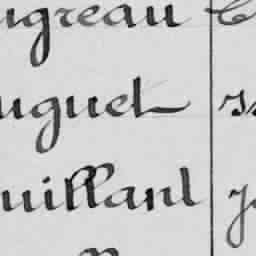 ugreau
uguet
uillard